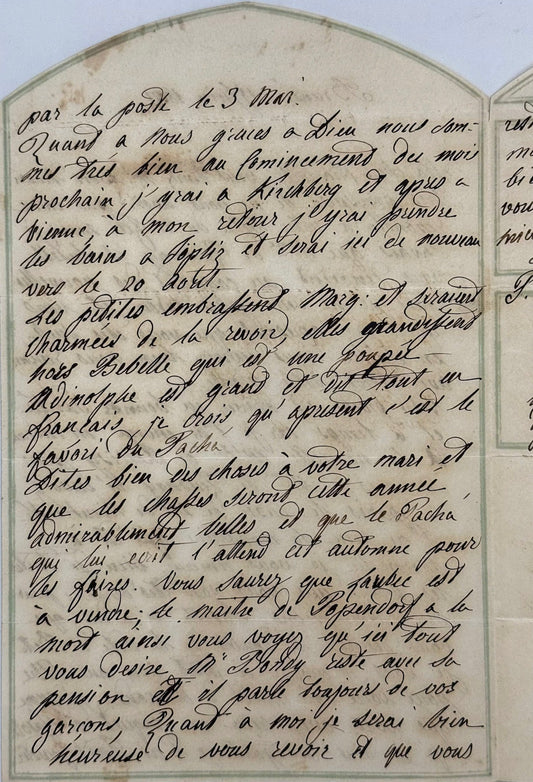 par la poste le 3 Mai.
Quand a Nous graces a Dieu nous som-
mes tres bien au Comincement du mois
prochain j'yrai a Kirchberg et apres a
vienne, à mon retour j'yrai prendre
les bains a Töpliz et serai ici de nouveau
vers le 20 Aout.
Les petites embrassent Marg: et seraient
charmées de la revoir, elles grandissent
hors Bebelle qui est une poupée
Adinolphe est grand et dit tout en
français, je crois qu'apresent c'est le
favori du Pacha,
Dites bien des choses à votre mari et
que les chasses seront cette année
admirablement belles et que le Pacha,
qui lui ecrit l'attend cet automne pour
les faires. Vous saurez que est
à vendre; le maitre de Popendorf a la
mort ainsi vous voyez qu'ici tout
vous desire, Mr Bondy reste avec sa
pension et il parle toujours de vos
garçons, Quand à moi je serai bien
heureuse de vous revoir et que vous
res
m
bi
vou